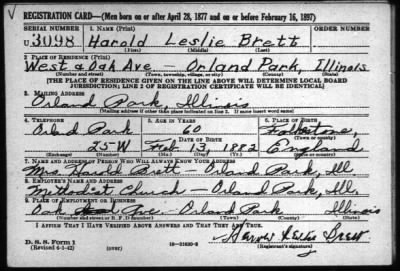 REGISTRATION CARD—(Men born on or after April 28, 1877 and on or before February 16, 1897)
SERIAL NUMBER 1. NAME (Print) ORDER NUMBER
U 3098 Harold Leslie Brett
(First) (Middle) (Last)
2. PLACE OF RESIDENCE (Print)
West & Oak Ave – Orland Park, Illinois
(Number and street) (Town, township, village, or city) (County) (State)
[THE PLACE OF RESIDENCE GIVEN ON THE LINE ABOVE WILL DETERMINE LOCAL BOARD
JURISDICTION; LINE 2 OF REGISTRATION CERTIFICATE WILL BE IDENTICAL]
3. MAILING ADDRESS
Orland Park, Illinois
[Mailing address if other than place indicated on line 2. If same insert word same]
4. TELEPHONE 5. AGE IN YEARS 6. PLACE OF BIRTH
Orland Park 60 Folkstone,
DATE OF BIRTH (Town or county)
25W Feb 13, 1882 England
(Exchange) (Number) (Mo.) (Day) (Yr.) (State or country)
7. NAME AND ADDRESS OF PERSON WHO WILL ALWAYS KNOW YOUR ADDRESS
Mrs. Harold Brett – Orland Park, Ill.
8. EMPLOYER'S NAME AND ADDRESS
Methodist Church – Orland Park, Ill.
9. PLACE OF EMPLOYMENT OR BUSINESS
Oak Ave. – Orland Park Illinois
(Number and street or R. F. D. number) (Town) (County) (State)
I AFFIRM THAT I HAVE VERIFIED ABOVE ANSWERS AND THAT THEY ARE TRUE.
D. S. S. Form 1
(Revised 4-1-42) (over) 16-21630-2 Harold Leslie Brett
(Registrant's signature)